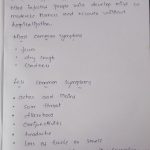 Most infected people will develop mild to
moderate illness and recover without
hospitalization.
Most common symptoms
• fever
• dry cough
• tiredness
Less common symptoms
• aches and pains
• sore throat
• diarrhoea
• conjunctivitis
• headache
• loss of taste or smell